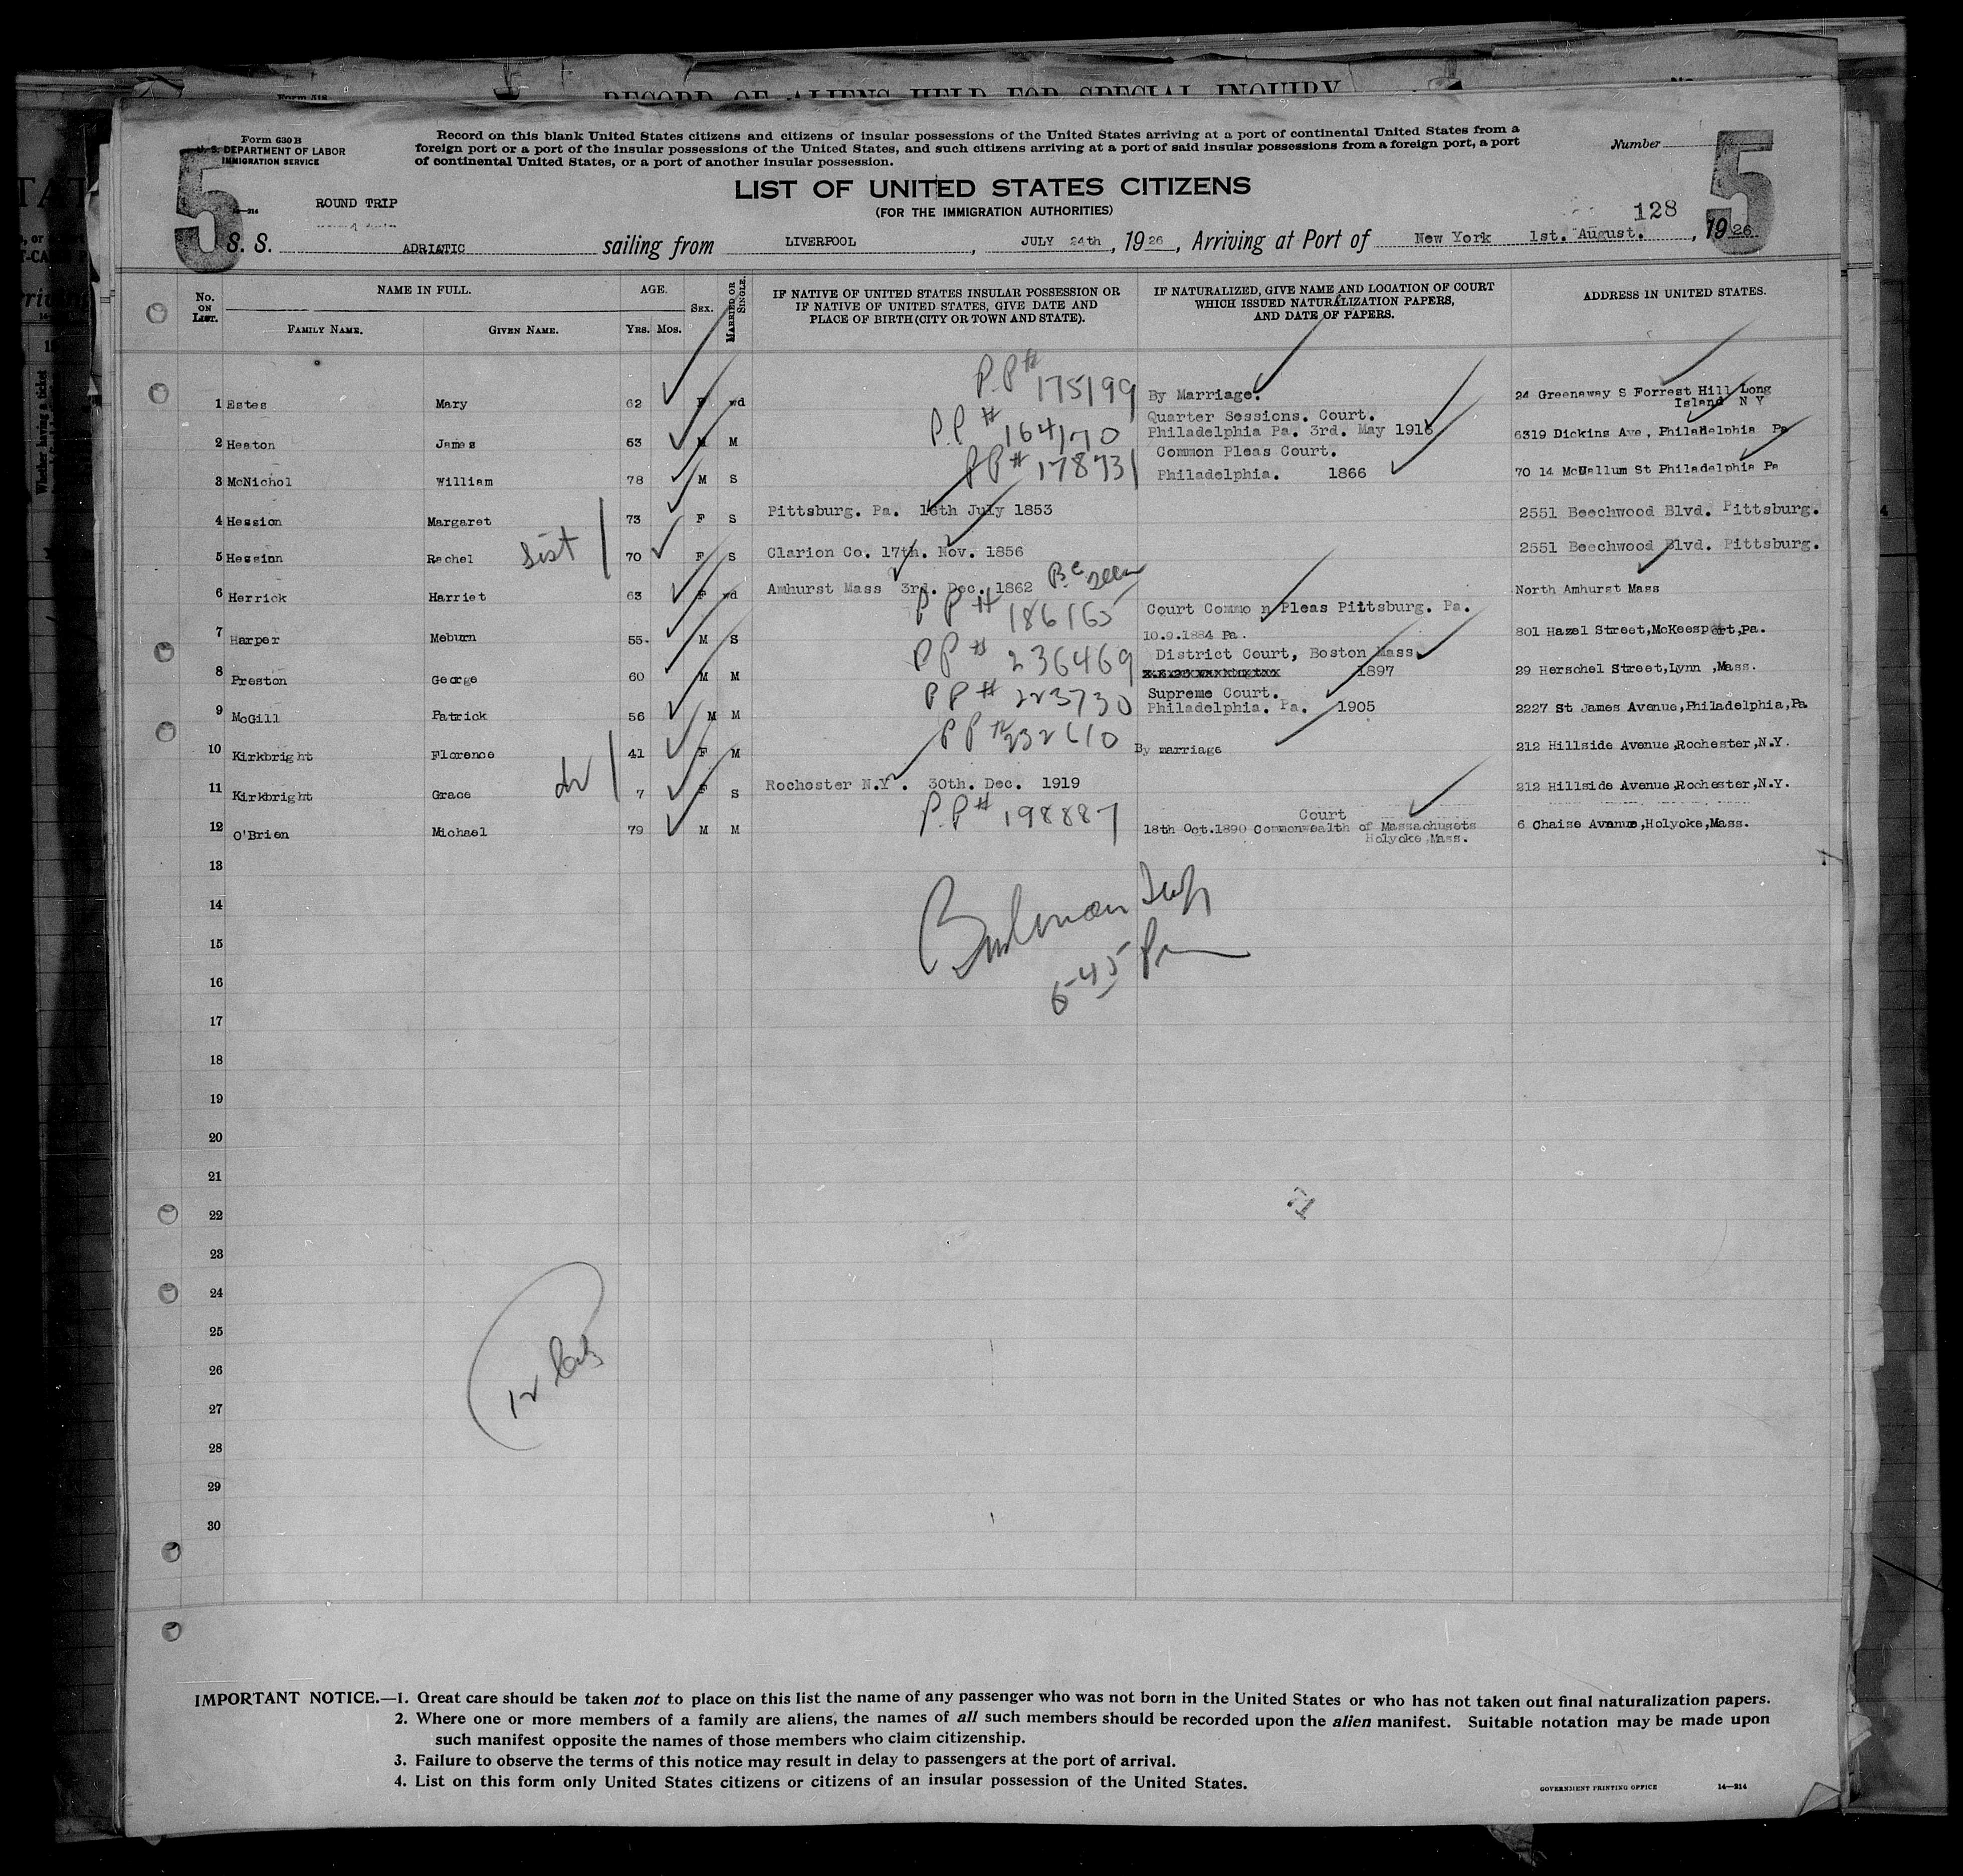 RECORD OF ALIENS HELD FOR SPECIAL INQUIRY
Form 630 B
U. S. DEPARTMENT OF LABOR
IMMIGRATION SERVICE
Record on this blank United States citizens and citizens of insular possessions of the United States arriving at a port of continental United States from a
foreign port or a port of the insular possessions of the United States, and such citizens arriving at a port of said insular possessions from a foreign port, a port
of continental United States, or a port of another insular possession.
Number
5
5
LIST OF UNITED STATES CITIZENS
(FOR THE IMMIGRATION AUTHORITIES)
ROUND TRIP
128
S. S. ADRIATIC sailing from LIVERPOOL, JULY 24th, 1926, Arriving at Port of New York 1st. August., 1926
No. ON LIST.
NAME IN FULL.
FAMILY NAME. GIVEN NAME.
AGE.
YRS. MOS.
SEX.
MARRIED OR SINGLE.
IF NATIVE OF UNITED STATES INSULAR POSSESSION OR
IF NATIVE OF UNITED STATES, GIVE DATE AND
PLACE OF BIRTH (CITY OR TOWN AND STATE).
IF NATURALIZED, GIVE NAME AND LOCATION OF COURT
WHICH ISSUED NATURALIZATION PAPERS,
AND DATE OF PAPERS.
ADDRESS IN UNITED STATES.
1 Estes Mary 62 F wd P.P# 175199 By Marriage. 24 Greenaway S Forrest Hill Long
Island N Y
Quarter Sessions. Court.
2 Heaton James 53 M M P.P# 164170 Philadelphia Pa. 3rd. May 1916 6319 Dickins Ave, Philadelphia Pa
Common Pleas Court.
3 McNichol William 78 M S PP# 178731 Philadelphia. 1866 70 14 McNallum St Philadelphia Pa
4 Hession Margaret 73 F S Pittsburg. Pa. 16th July 1853 2551 Beechwood Blvd. Pittsburg.
5 Hessinn Rachel sist 70 F S Clarion Co. 17th. Nov. 1856 2551 Beechwood Blvd. Pittsburg.
6 Herrick Harriet 63 F wd Amhurst Mass 3rd. Dec. 1862 B.C seen North Amhurst Mass
Court Commo n Pleas Pittsburg. Pa.
7 Harper Meburn 55. M S PP# 186165 10.9.1884 Pa. 801 Hazel Street,McKeesport,Pa.
District Court, Boston Mass
8 Preston George 60 M M PP# 236469 1897 29 Herschel Street,Lynn ,Mass.
Supreme Court.
9 McGill Patrick 56 M M PP# 223730 Philadelphia. Pa. 1905 2227 St James Avenue,Philadelphia,Pa
10 Kirkbright Florence 41 F M PP# 232610 By marriage 212 Hillside Avenue,Rochester,N.Y.
11 Kirkbright Grace 7 F S Rochester N.Y. 30th. Dec. 1919 212 Hillside Avenue,Rochester,N.Y.
Court
12 O'Brien Michael 79 M M P.P# 198887 18th Oct.1890 Commonwealth of Massachusets 6 Chaise Avenue,Holyoke,Mass.
Holyoke,Mass.
13
14
15
6-45 Pm
16
17
18
19
20
21
22
23
24
25
26
27
28
29
30
IMPORTANT NOTICE.—1. Great care should be taken not to place on this list the name of any passenger who was not born in the United States or who has not taken out final naturalization papers.
2. Where one or more members of a family are aliens, the names of all such members should be recorded upon the alien manifest. Suitable notation may be made upon
such manifest opposite the names of those members who claim citizenship.
3. Failure to observe the terms of this notice may result in delay to passengers at the port of arrival.
4. List on this form only United States citizens or citizens of an insular possession of the United States.
GOVERNMENT PRINTING OFFICE 14—214